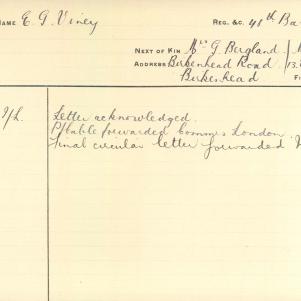 NAME E. G. Viney REG. &C. 41st Ba
NEXT OF KIN Mrs G. Bergland
ADDRESS Birkenhead Road 13.
Birkenhead F
Letter acknowledged.
P/table forwarded Commis London.
Final circular letter forwarded